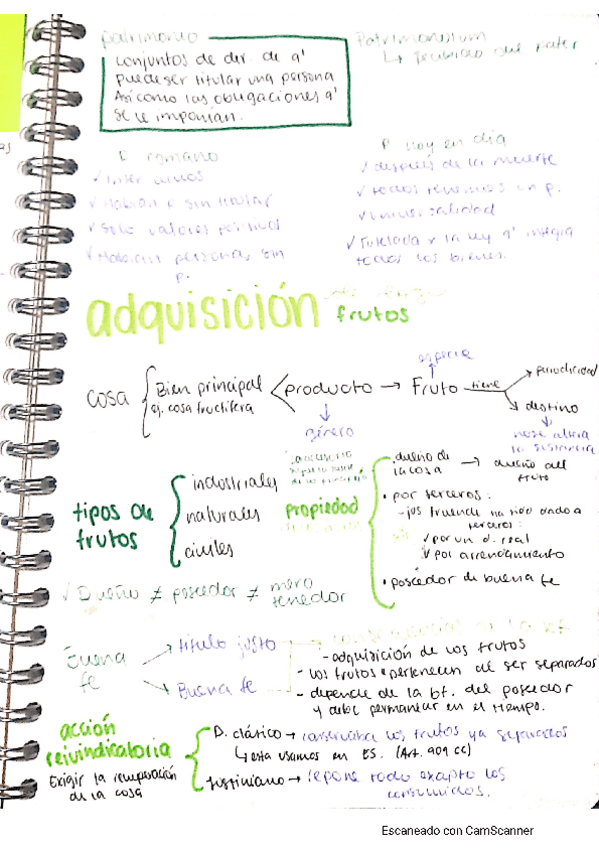 patrimonio
conjuntos de der. de q'
puede ser titular una persona
Así como las obligaciones q'
se le imponían.
Patrimonium
↳ Recibido del pater
D. romano
✓ Inter vivos
✓ Habían P. sin titular
✓ Solo valores positivos
✓ Habían personas sin
p.
P. hoy en día
✓ después de la muerte
✓ todos tenemos un p.
✓ universalidad
✓ Tutelada x la ley q' integra
todos los bienes.
adquisición
frutos
cosa
Bien principal
ej. cosa fructífera
producto → Fruto tiene
género
especie
periodicidad
destino
no se altera
la sustancia
tipos de
frutos
industriales
naturales
civiles
propiedad
· dueño de
la cosa → dueño del
fruto
· por terceros:
- jus fruende ha sido dado a
terceros:
✓ por un d. real
✓ por arrendamiento
· poseedor de buena fe
✓ Dueño ≠ poseedor ≠ mero
tenedor
Buena
fe
título justo
Buena fe
- adquisición de los frutos
- los frutos pertenecen al ser separados
- depende de la bf. del poseedor
y debe permanecer en el tiempo.
acción
reivindicatoria
Exigir la recuperación
de la cosa
D. clásico → conservaba los frutos ya separados
↳ esta usamos en ES. (Art. 909 CC)
Justiniano → repone todo excepto los
consumidos.
Escaneado con CamScanner